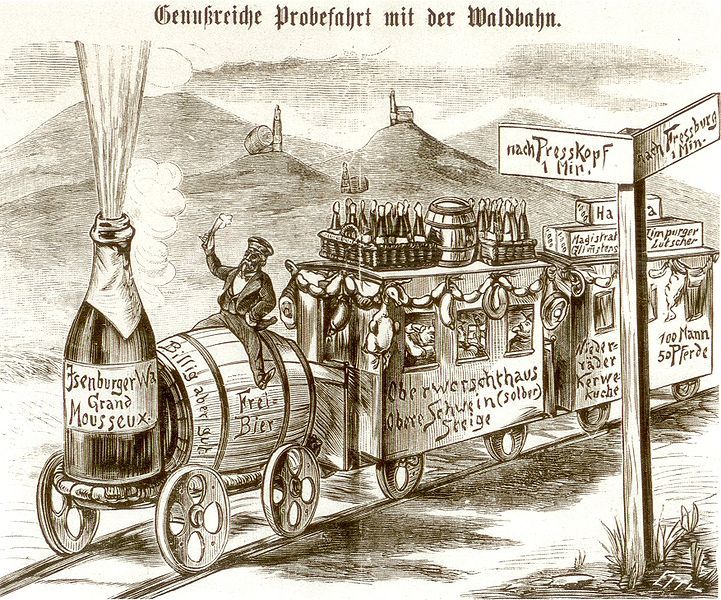 Genußreiche Probefahrt mit der Waldbahn.
nach Presskopf
1 Min.
nach Fressburg
1 Min.
Isenburger Wa
Grand
Mousseux
Billig aber gut
Frei-
Bier
Oberworschthaus
Obere Schwein (solber)
Seeige
Ha a
Magistrat
Limpurger
Lutscher
Nieder-
räder
Kerwe-
kuche
100 Mann
50 Pferde